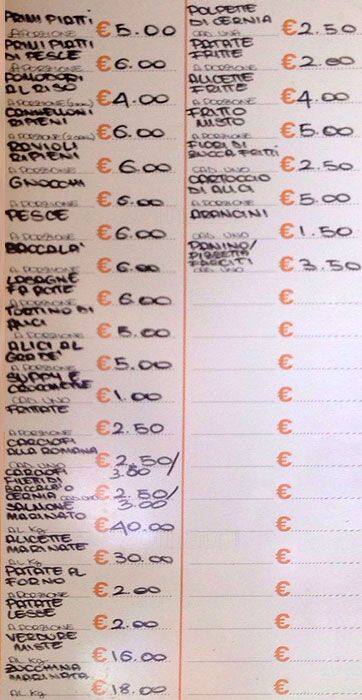 PRIMI PIATTI
A PORZIONE €5.00
PRIMI PIATTI
DI PESCE
A PORZIONE €6.00
POMODORI
AL RISO
A PORZIONE €4.00
CANNELLONI
RIPIENI
A PORZIONE €6.00
RAVIOLI
RIPIENI
A PORZIONE €6.00
GNOCCHI
A PORZIONE €6.00
PESCE
A PORZIONE €6.00
BACCALA'
A PORZIONE €6.00
LASAGNE
A PORZIONE €6.00
TORTINO DI
ALICI
A PORZIONE €5.00
ALICI AL
A PORZIONE €5.00
SUPPLÌ E
CROCCHETTE
CAD. UNO €1.00
FRITTATE
A PORZIONE €2.50
CARCIOFI
ALLA ROMANA
CAD. UNO €2.50/
3.50
FILETTI DI
BACCALÀ O
CERNIA CAD. UNO €2.50/
3.00
SALMONE
MARINATO
AL Kg €40.00
ALICETTE
MARINATE
AL Kg €30.00
PATATE AL
FORNO
A PORZIONE €2.00
PATATE
LESSE
A PORZIONE €2.00
VERDURE
MISTE
AL Kg €16.00
ZUCCHINA
MARINATA
AL Kg €18.00
POLPETTE
DI CERNIA
CAD. UNA €2.50
PATATE
FRITTE
A PORZIONE €2.00
ALICETTE
FRITTE
A PORZIONE €4.00
FRITTO
MISTO
A PORZIONE €5.00
FIORI DI
ZUCCA FRITTI
CAD. UNO €2.50
CARTOCCIO
DI ALICI
A PORZIONE €5.00
ARANCINI
CAD. UNO €1.50
PANINO/
PIZZETTA
FARCITI
CAD. UNO €3.50
€
€
€
€
€
€
€
€
€
€
€
€
€